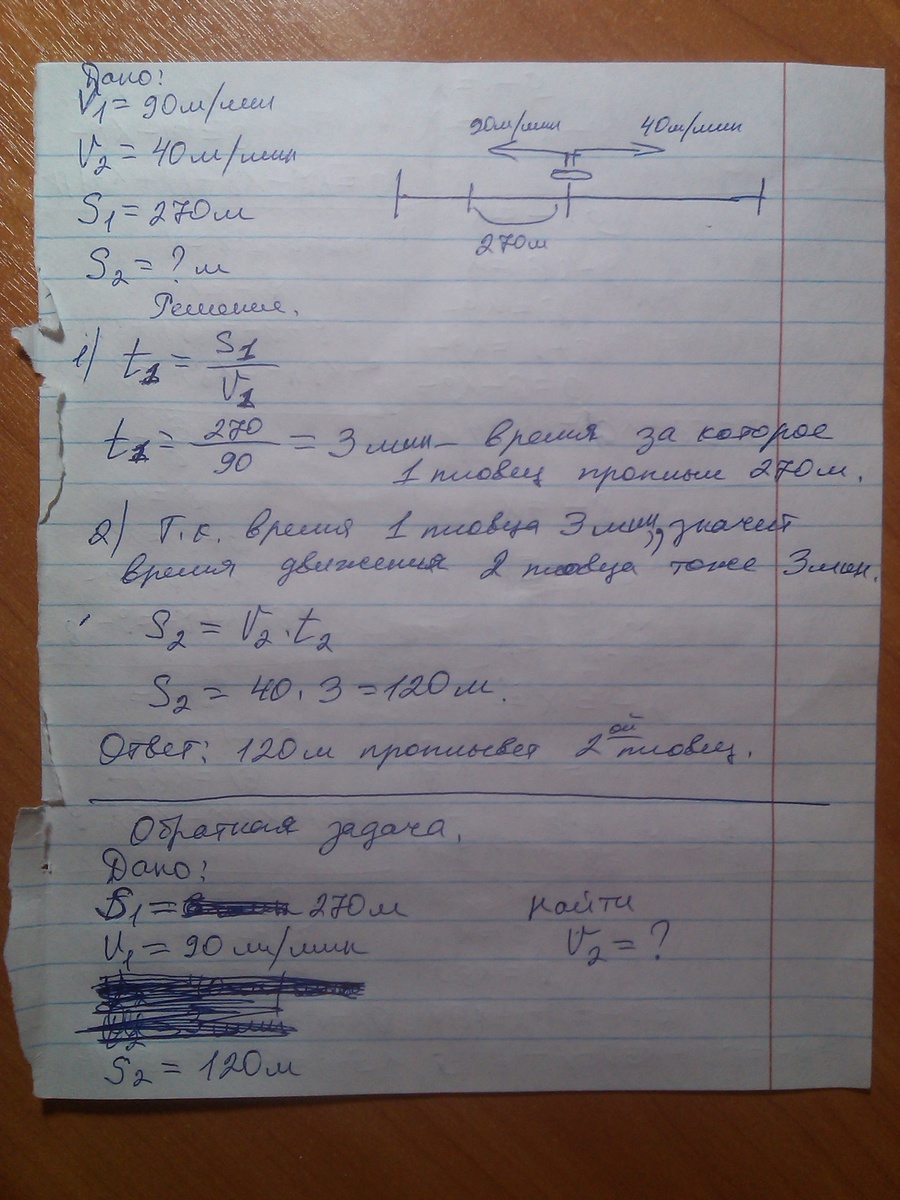 Дано:
V₁ = 90 м/мин
V₂ = 40 м/мин
S₁ = 270 м
S₂ = ? м
90 м/мин 40 м/мин
270 м
Решение.
1) t₁ = S₁/V₁
t₁ = 270/90 = 3 мин – время за которое
1 пловец проплыл 270 м.
2) Т.к. время 1 пловца 3 мин, значит
время движения 2 пловца тоже 3 мин.
S₂ = V₂ · t₂
S₂ = 40 · 3 = 120 м.
Ответ: 120 м проплывет 2ой пловец.
Обратная задача.
Дано:
S₁ = 270 м
V₁ = 90 м/мин
S₂ = 120 м
найти
V₂ = ?